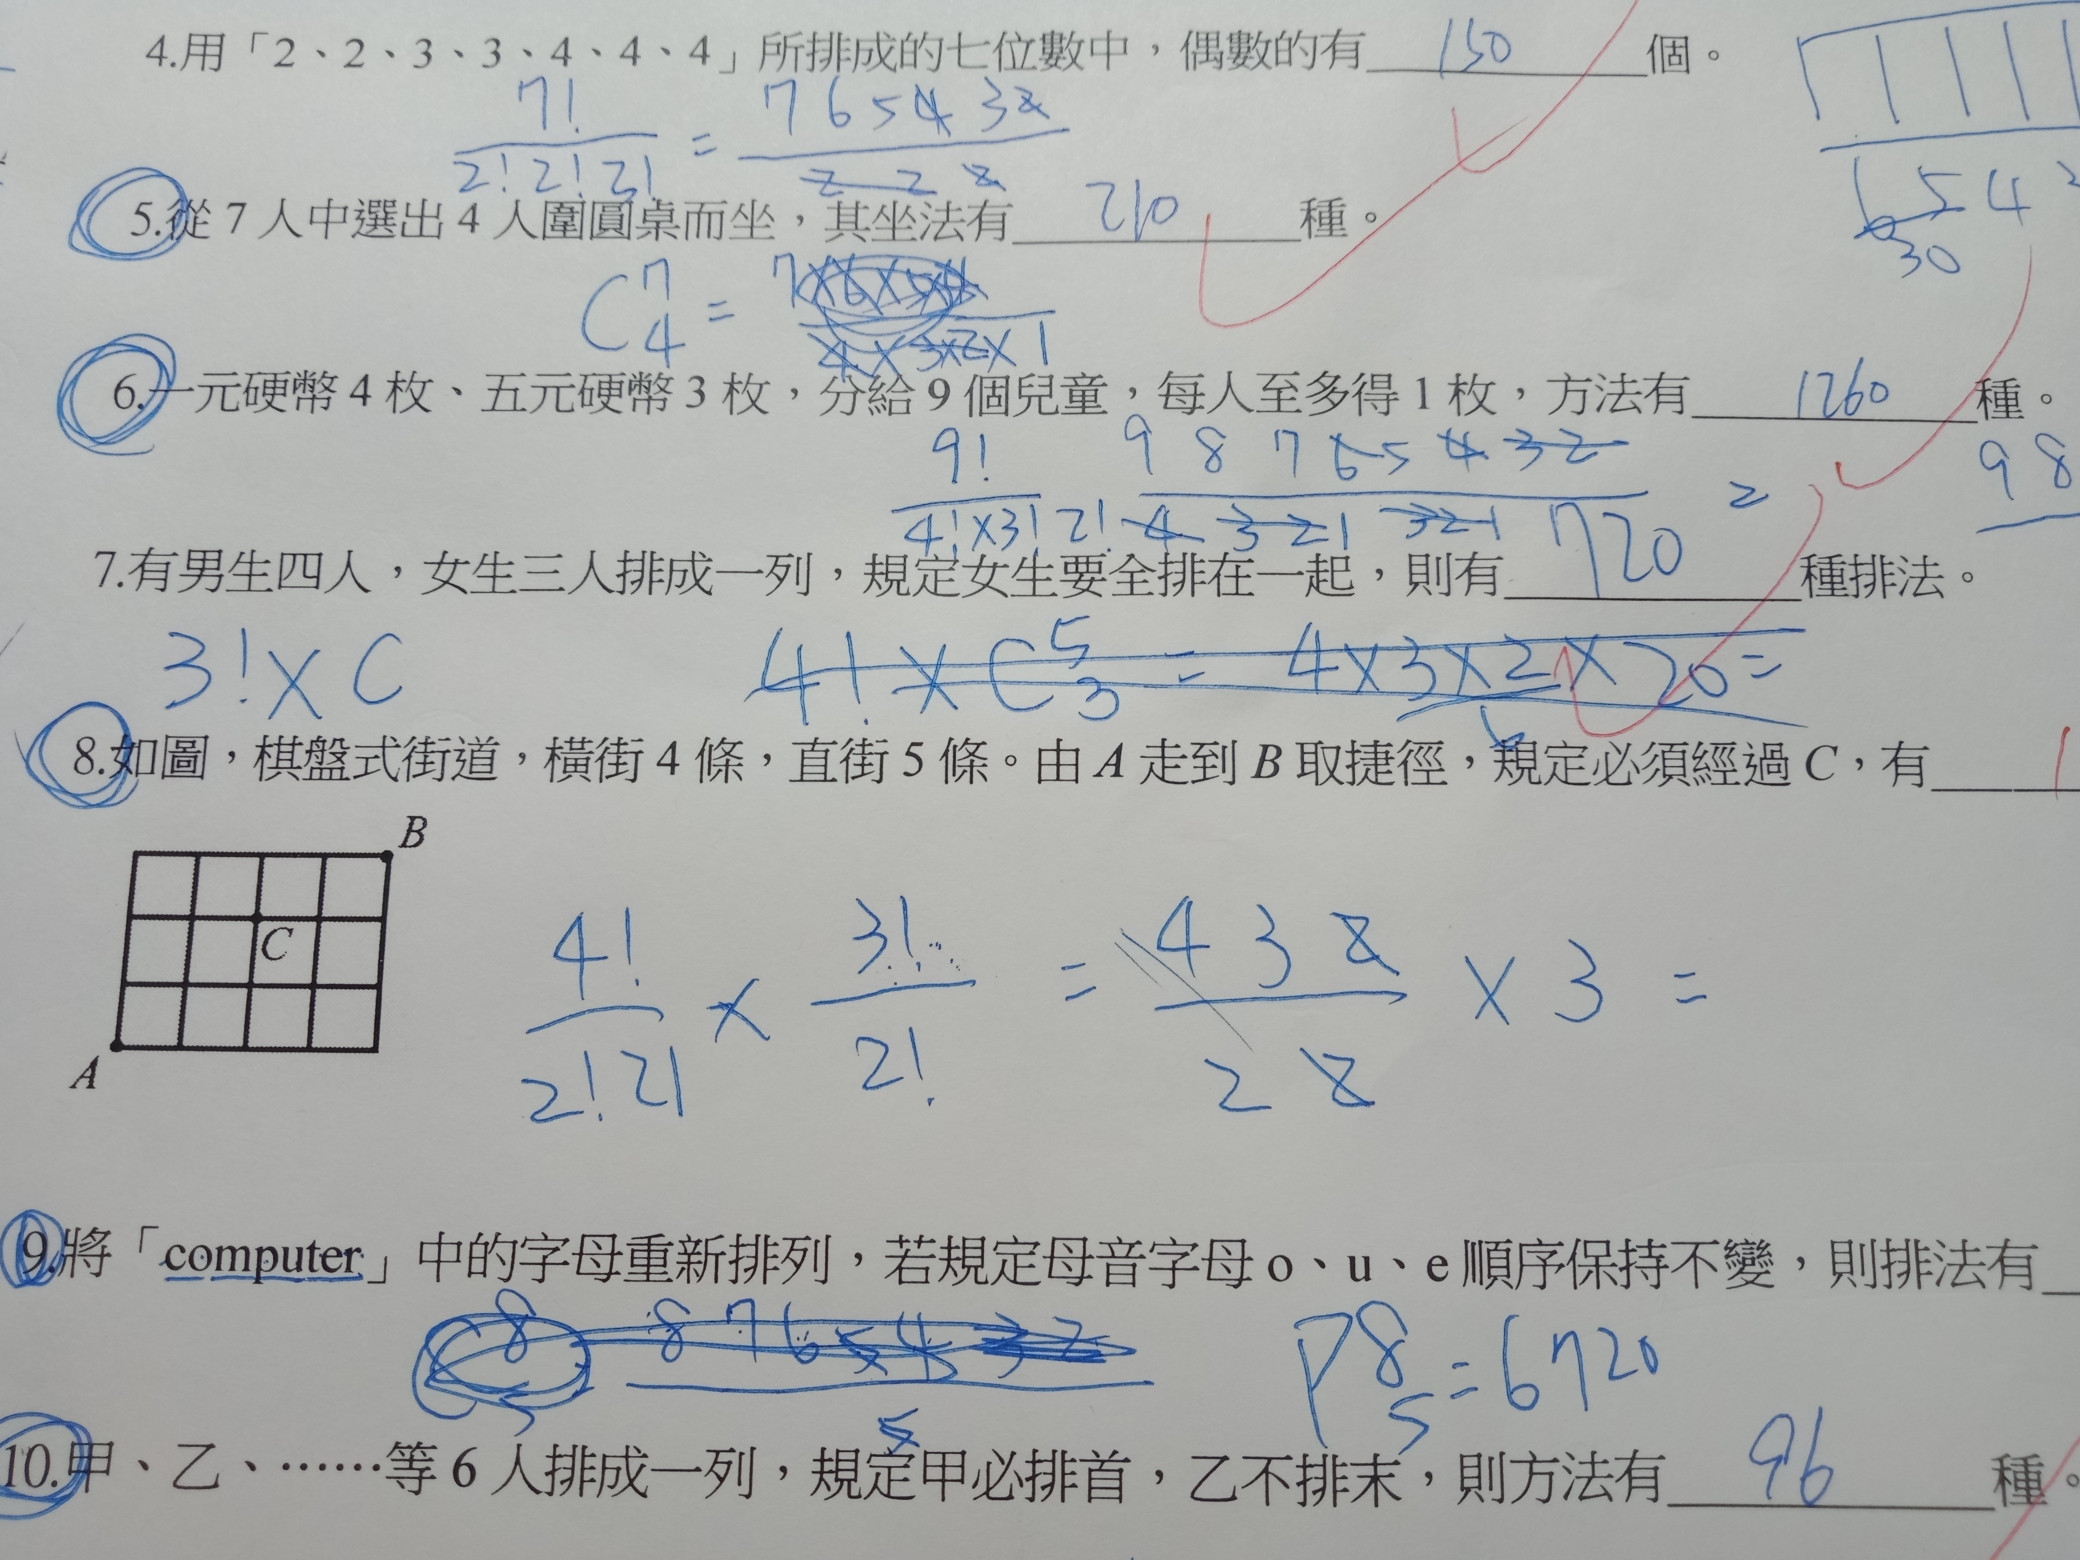 4.用「2、2、3、3、4、4、4」所排成的七位數中，偶數的有 150 個。
7! / 2! 2! 3! = 7 6 5 4 3 2 / 2 2 2
6 5 4
30
5.從 7 人中選出 4 人圍圓桌而坐，其坐法有 210 種。
C 7 4 = 7×6×5×4 / 4×3×2×1
6.一元硬幣 4 枚、五元硬幣 3 枚，分給 9 個兒童，每人至多得 1 枚，方法有 1260 種。
9! / 4!×3! 2! 9 8 7 6 5 4 3 2 / 4 3 2 1 3 2 1 = 9 8
7.有男生四人，女生三人排成一列，規定女生要全排在一起，則有 720 種排法。
3! × C 4! × C 5 3 = 4×3×2×20=
6
8.如圖，棋盤式街道，橫街 4 條，直街 5 條。由 A 走到 B 取捷徑，規定必須經過 C，有
B
C
A
4! / 2! 2! × 3! / 2! = 4 3 2 / 2 2 × 3 =
9.將「computer」中的字母重新排列，若規定母音字母 o、u、e 順序保持不變，則排法有
8 5 8 7 6 5 4 3 2 / 5 P 8 5 = 6720
10.甲、乙、……等 6 人排成一列，規定甲必排首，乙不排末，則方法有 96 種。